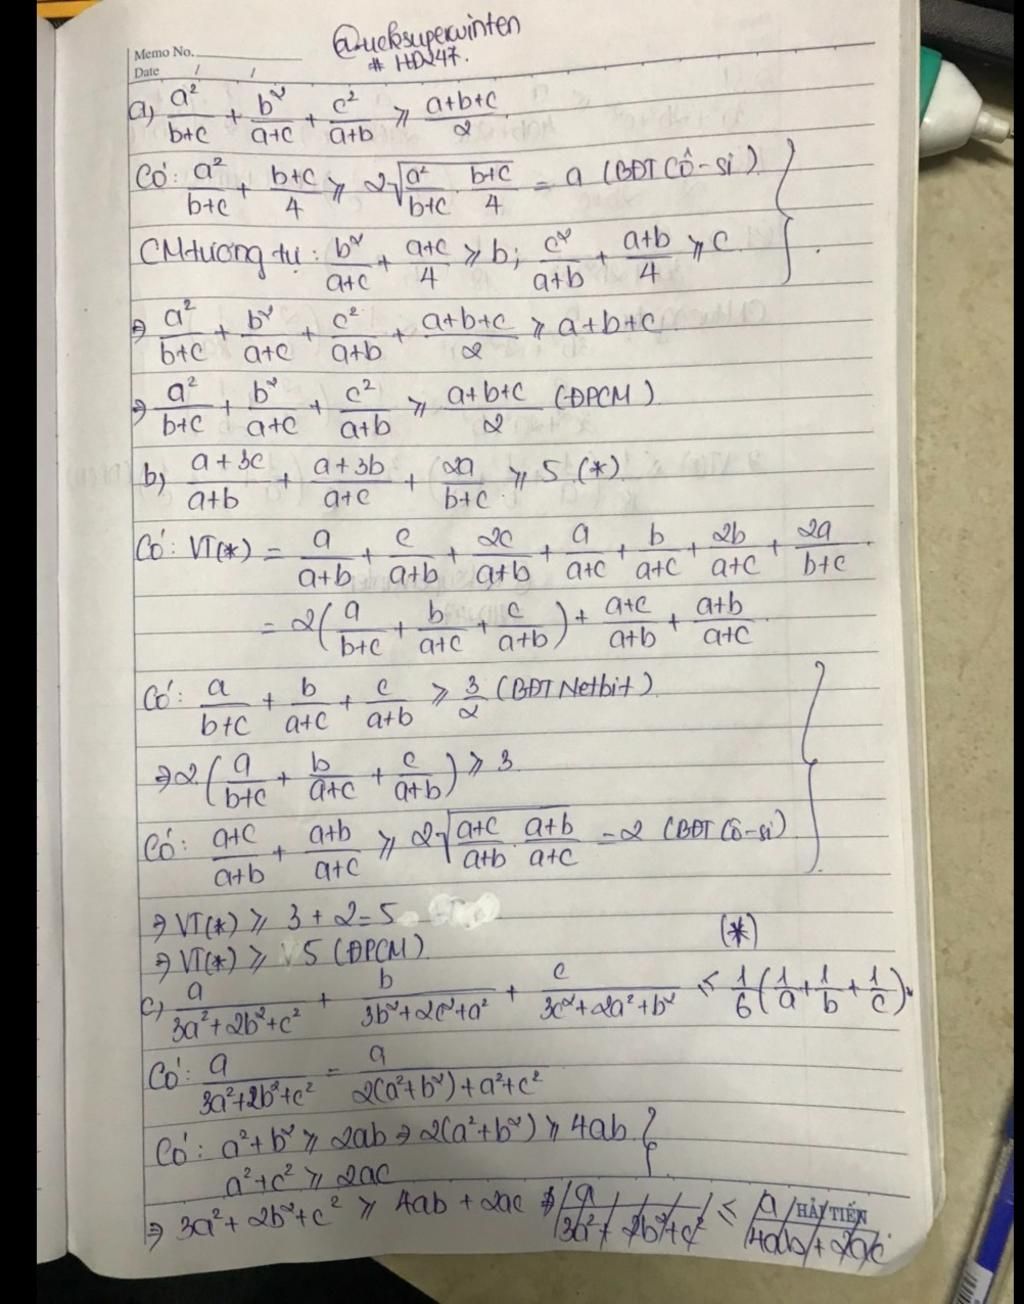 @ueksuperwinten
Memo No.
# HD247.
Date / /
a) a²/(b+c) + b²/(a+c) + c²/(a+b) ⩾ (a+b+c)/2
Có: a²/(b+c) + (b+c)/4 ⩾ 2√(a²/(b+c) · (b+c)/4) = a (BĐT Cô-si) }
CM tương tự: b²/(a+c) + (a+c)/4 ⩾ b; c²/(a+b) + (a+b)/4 ⩾ c.
⇒ a²/(b+c) + b²/(a+c) + c²/(a+b) + (a+b+c)/2 ⩾ a+b+c
⇒ a²/(b+c) + b²/(a+c) + c²/(a+b) ⩾ (a+b+c)/2 (ĐPCM)
b) (a+3c)/(a+b) + (a+3b)/(a+c) + 2a/(b+c) ⩾ 5 (*)
Có: VT(*) = a/(a+b) + c/(a+b) + 2c/(a+b) + a/(a+c) + b/(a+c) + 2b/(a+c) + 2a/(b+c).
= 2(a/(b+c) + b/(a+c) + c/(a+b)) + (a+c)/(a+b) + (a+b)/(a+c)
Có: a/(b+c) + b/(a+c) + c/(a+b) ⩾ 3/2 (BĐT Netbit) }
⇒ 2(a/(b+c) + b/(a+c) + c/(a+b)) ⩾ 3
Có: (a+c)/(a+b) + (a+b)/(a+c) ⩾ 2√((a+c)/(a+b) · (a+b)/(a+c)) = 2 (BĐT Cô-si)
⇒ VT(*) ⩾ 3 + 2 = 5
⇒ VT(*) ⩾ 5 (ĐPCM)
(*)
c) a/(3a²+2b²+c²) + b/(3b²+2c²+a²) + c/(3c²+2a²+b²) ⩽ 1/6(1/a + 1/b + 1/c).
Có: a/(3a²+2b²+c²) = a/(2(a²+b²)+a²+c²)
Có: a²+b² ⩾ 2ab ⇒ 2(a²+b²) ⩾ 4ab }
a²+c² ⩾ 2ac
⇒ 3a²+2b²+c² ⩾ 4ab + 2ac a/(3a²+2b²+c²) ⩽ a/(4ab+2ac)
HẢI TIẾN